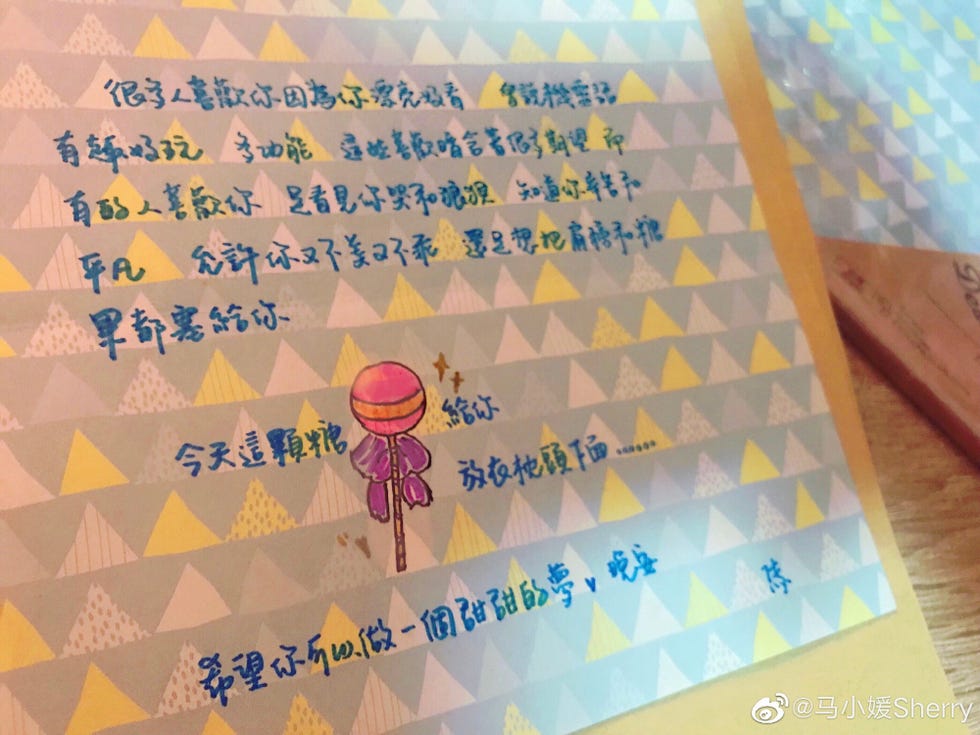 很多人喜歡你因為你漂亮好看 會說機靈話
有趣好玩 多功能 這些喜歡暗含著很多期望 即
有的人喜歡你 是看見你哭和狼狽 知道你辛苦和
平凡 允許你又不美又不乖 還是想把肩膀和糖
果都塞給你
今天這顆糖 給你
放在枕頭下面……
希望你可以做一個甜甜的夢、晚安
陈
@马小媛Sherry